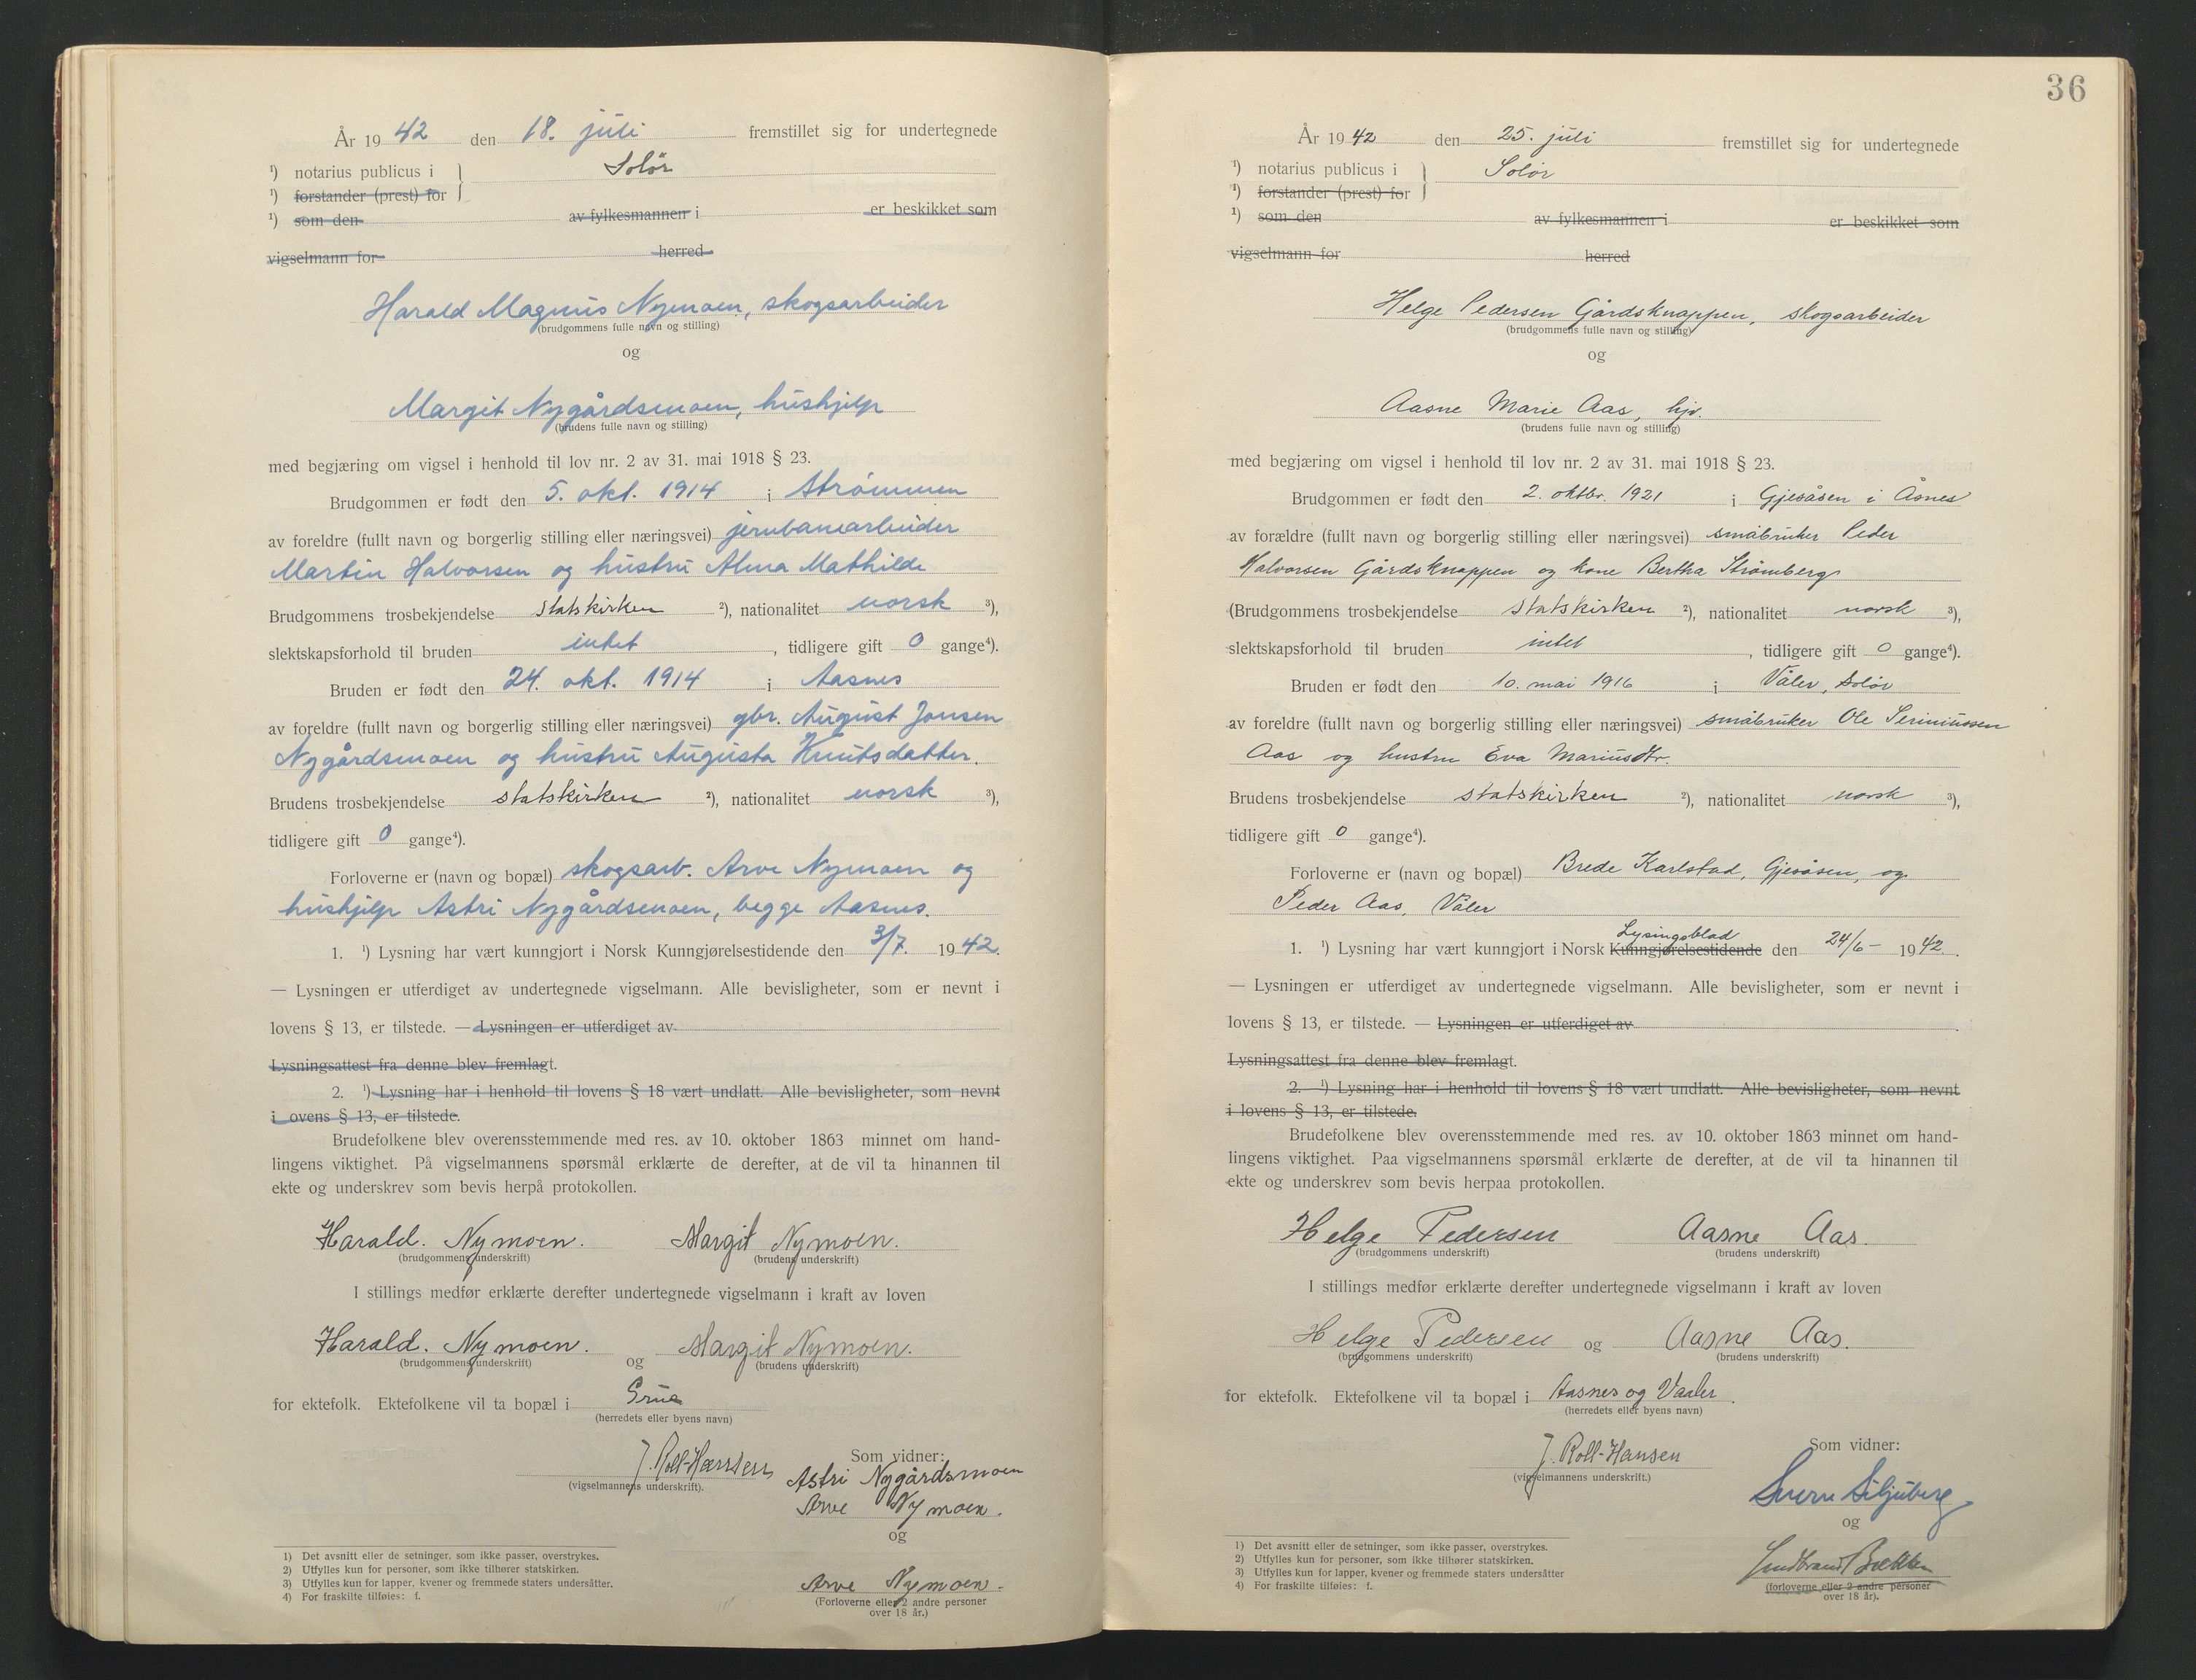 År 1942 den 18. juli fremstillet sig for undertegnede
¹) notarius publicus i Solør
¹) forstander (prest) for
¹) som den av fylkesmannen i er beskikket som
vigselmann for herred
Harald Magnus Nymoen, skogsarbeider
(brudgommens fulle navn og stilling)
og
Margit Nygårdsmoen, hushjelp
(brudens fulle navn og stilling)
med begjæring om vigsel i henhold til lov nr. 2 av 31. mai 1918 § 23.
Brudgommen er født den 5. okt. 1914 i Strømmen
av foreldre (fullt navn og borgerlig stilling eller næringsvei) jernbanearbeider
Martin Halvorsen og hustru Alma Mathilde
Brudgommens trosbekjendelse statskirken ²), nationalitet norsk ³),
slektskapsforhold til bruden intet, tidligere gift 0 gange⁴).
Bruden er født den 24. okt. 1914 i Aasnes
av foreldre (fullt navn og borgerlig stilling eller næringsvei) gbr. August Jonsen
Nygårdsmoen og hustru Augusta Knutsdatter.
Brudens trosbekjendelse statskirken ²), nationalitet norsk ³),
tidligere gift 0 gange⁴).
Forloverne er (navn og bopæl) skogsarb. Arve Nymoen og
hushjelp Astri Nygårdsmoen, begge Aasnes.
1. ¹) Lysning har vært kunngjort i Norsk Kunngjørelsestidende den 3/7. 1942.
— Lysningen er utferdiget av undertegnede vigselmann. Alle bevisligheter, som er nevnt i
lovens § 13, er tilstede. — Lysningen er utferdiget av
Lysningsattest fra denne blev fremlagt.
2. ¹) Lysning har i henhold til lovens § 18 vært undlatt. Alle bevisligheter, som nevnt
i ovens § 13, er tilstede.
Brudefolkene blev overensstemmende med res. av 10. oktober 1863 minnet om hand-
lingens viktighet. På vigselmannens spørsmål erklærte de derefter, at de vil ta hinannen til
ekte og underskrev som bevis herpå protokollen.
Harald. Nymoen. Margit Nymoen.
(brudgommens underskrift) (brudens underskrift)
I stillings medfør erklærte derefter undertegnede vigselmann i kraft av loven
Harald. Nymoen. og Margit Nymoen.
(brudgommens underskrift) (brudens underskrift)
for ektefolk. Ektefolkene vil ta bopæl i Grue
(herredets eller byens navn)
J. Roll-Hansen Som vidner:
(vigselmannens underskrift).
Astri Nygårdsmoen
Arve Nymoen.
og
Arve Nymoen.
(Forloverne eller 2 andre personer
over 18 år.)
1) Det avsnitt eller de setninger, som ikke passer, overstrykes.
2) Utfylles kun for personer, som ikke tilhører statskirken.
3) Utfylles kun for lapper, kvener og fremmede staters undersåtter.
4) For fraskilte tilføies: f.
36
År 1942 den 25. juli fremstillet sig for undertegnede
¹) notarius publicus i Solør
¹) forstander (prest) for
¹) som den av fylkesmannen i er beskikket som
vigselmann for herred
Helge Pedersen Gårdsknappen, skogsarbeider
(brudgommens fulle navn og stilling)
og
Aasne Marie Aas, hjv.
(brudens fulle navn og stilling)
med begjæring om vigsel i henhold til lov nr. 2 av 31. mai 1918 § 23.
Brudgommen er født den 2. oktbr. 1921 i Gjesåsen i Åsnes
av forældre (fullt navn og borgerlig stilling eller næringsvei) småbruker Peder
Halvorsen Gårdsknappen og kone Bertha Strömberg
(Brudgommens trosbekjendelse statskirken ²), nationalitet norsk ³),
slektskapsforhold til bruden intet, tidligere gift 0 gange⁴).
Bruden er født den 10. mai 1916 i Våler, Solør
av foreldre (fullt navn og borgerlig stilling eller næringsvei) småbruker Ole Seriniussen
Aas og hustru Eva Mariusdtr.
Brudens trosbekjendelse statskirken ²), nationalitet norsk ³),
tidligere gift 0 gange⁴).
Forloverne er (navn og bopæl) Brede Karlstad, Gjesåsen, og
Peder Aas, Våler
Lysingsblad
1. ¹) Lysning har vært kunngjort i Norsk Kunngjørelsestidende den 24/6 - 1942.
— Lysningen er utferdiget av undertegnede vigselmann. Alle bevisligheter, som er nevnt i
lovens § 13, er tilstede. — Lysningen er utferdiget av
Lysningsattest fra denne blev fremlagt.
2. ¹) Lysning har i henhold til lovens § 18 vært undlatt. Alle bevisligheter, som nevnt
i lovens § 13, er tilstede.
Brudefolkene blev overensstemmende med res. av 10. oktober 1863 minnet om hand-
lingens viktighet. Paa vigselmannens spørsmål erklærte de derefter, at de vil ta hinannen til
ekte og underskrev som bevis herpaa protokollen.
Helge Pedersen Aasne Aas.
(brudgommens underskrift) (brudens underskrift)
I stillings medfør erklærte derefter undertegnede vigselmann i kraft av loven
Helge Pedersen og Aasne Aas.
(brudgommens underskrift) (brudens underskrift)
for ektefolk. Ektefolkene vil ta bopæl i Aasnes og Vaaler.
(herredets eller byens navn)
J. Roll-Hansen Som vidner:
(vigselmannens underskrift.)
Sverre Siljuberg
og
(forloverne eller 2 andre personer
over 18 år).
1) Det avsnitt eller de setninger, som ikke passer, overstrykes.
2) Utfylles kun for personer, som ikke tilhører statskirken.
3) Utfylles kun for lapper, kvener og fremmede staters undersåtter
4) For fraskilte tilføies: f.